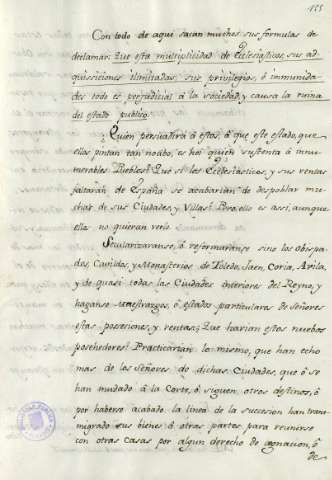 155
Con todo de aqui sacan muchos sus formulas de
declamar: Que esta multiplicidad de Eclesiasticos, sus ad-
quisiciones ilimitadas, sus privilegios, é inmunida-
des todo es perjudicial á la sociedad, y causa la ruina
del estado publico.
Quién persuadirá á estos, á que este estado, que
ellos pintan tan nocibo, es hoi quien sustenta á innu-
merables Pueblos? Qué si los Eclesiasticos, y sus rentas
faltarán de España se acabarían de despoblar mu-
chas de sus Ciudades, y Villas? Pero ello es assi, aunque
ellos no quieran verlo.
Secularizaranse, ó reformaranse sino los Obispa-
dos, Cavildos, y Monasterios de Toledo, Jaen, Coria, Avila,
y de quasi todas las Ciudades interiores del Reyno, y
haganse maestrazgos, ó estados particulares de Señores
estas posesiones, y rentas; Que harían estos nuebos
posehedores? Practicarían lo mismo, que han echo
mas de los Señores de dichas Ciudades, que ó se
han mudado á la Corte, ó siguen otros destinos, ó
por haberse acabado la linea de la succesion han trans-
migrado sus bienes á otras partes para reunirse
con otras Casas por algun derecho de agnacion, ó
de